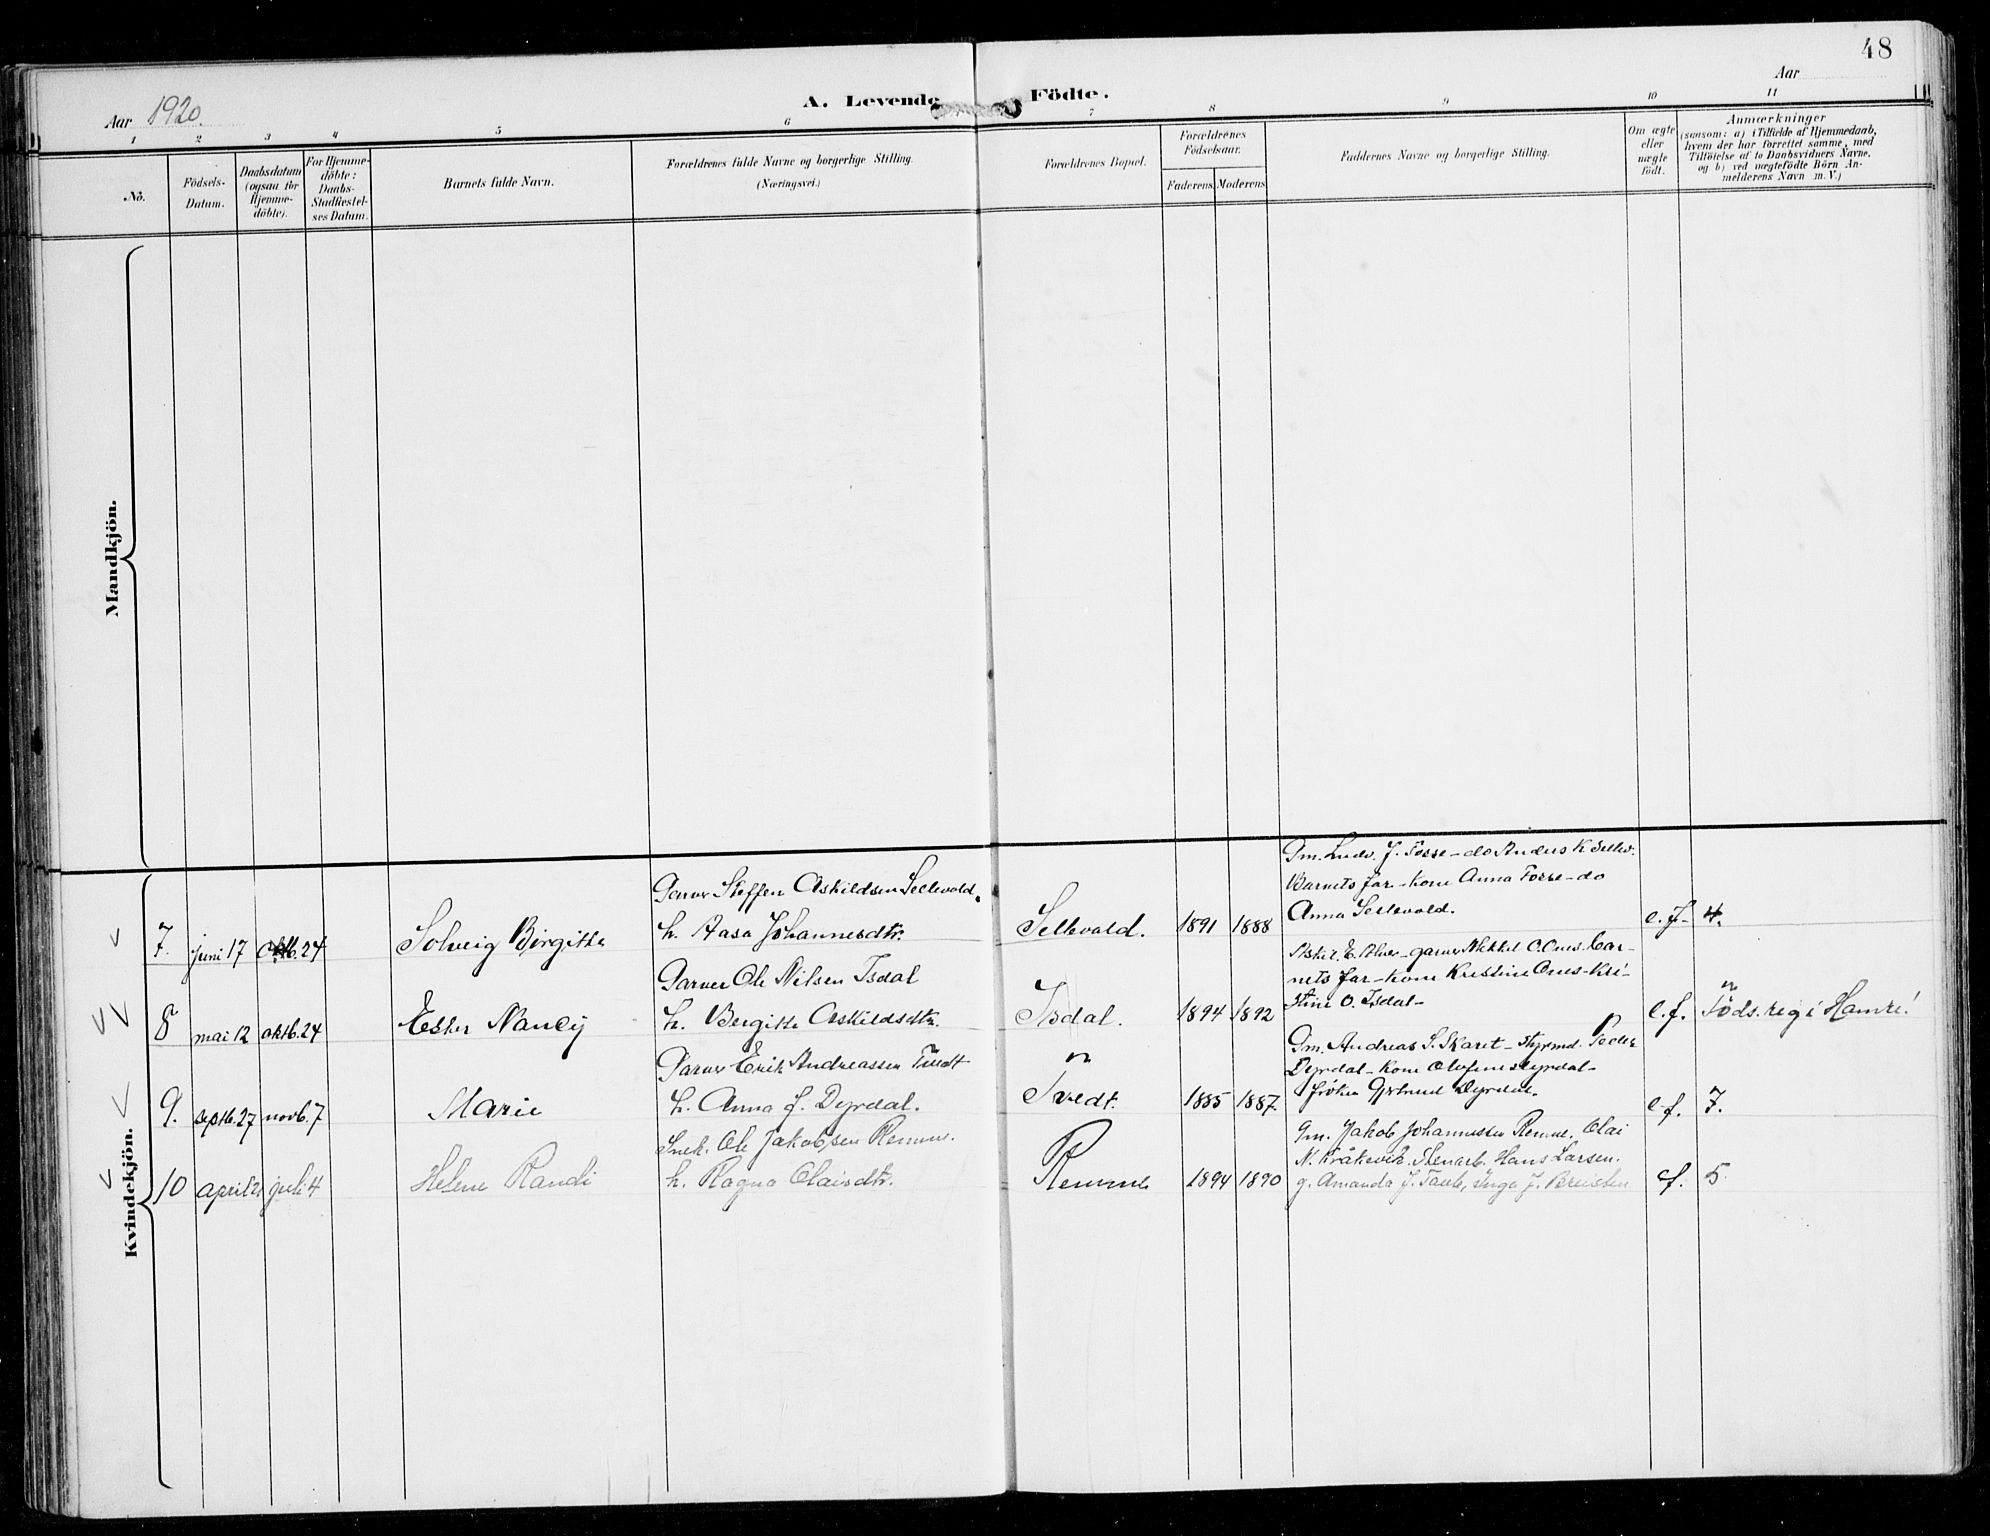 48
Aar 1920.
A. Levende Födte.
Aar
1 2 3 4 5 6 7 8 9 10 11
No.
Födsels-
Datum.
Daabsdatum
(ogsaa for
Hjemme-
döbte).
For Hjemme-
döbte:
Daabs-
Stadfæstel-
ses Datum.
Barnets fulde Navn.
Forældrenes fulde Navne og borgerlige Stilling.
(Næringsvei.)
Forældrenes Bopæl.
Forældrenes
Födselsaar.
Faderens Moderens
Faddernes Navne og borgerlige Stilling.
Om ægte
eller
uægte
födt.
Anmærkninger
(saasom: a) i Tilfælde af Hjemmedaab,
hvem der har forrettet samme, med
Tilföielse af to Daabsvidners Navne,
og b) ved uægtefödte Börn An-
melderens Navn m. V.)
Mandkjön.
Kvindekjön.
7. juni 17 oktb. 24 Solveig Birgitte
Garver Steffen Askildsen Sellevold
h. Aasa Johannesdtr.
Sellevold. 1891 1888
Gm. Ludv. J. Fosse - do Anders K Sellev.
Barnets far - kone Anna Fosse - do
Anna Sellevold.
e. f. 4.
8 mai 12 oktb. 24 Esther Nancy
Garver Ole Nilsen Isdal
h. Bergitte Askildsdtr.
Isdal. 1894 1892
Askil. E. Alver - garver Mikkel O. Bar-
nets far - kone Kristine - Kri-
stine O. Isdal -
e. f. Föds. reg i Hamre!
9. septb. 27 novb. 7 Marie
Garver Erik Andreassen Tvedt
h. Anna J. Dyrdal.
Tvedt. 1885 1887
Gm. Andreas S. Skaret - styrmd. Peder
Dyrdal - kone Olufine Dyrdal -
fröken Gjertrud Dyrdal.
e. f. 7.
10 april 21 juli 4 Helene Randi
Snek. Ole Jakobsen Remme.
h. Ragna Olaisdtr.
Remme 1894 1890
Gm. Jakob Johannessen Remme, Olai
N. Kråkevik. Stenarb. Hans Larsen.
g. Amanda J. Inga J.
ef. 5.